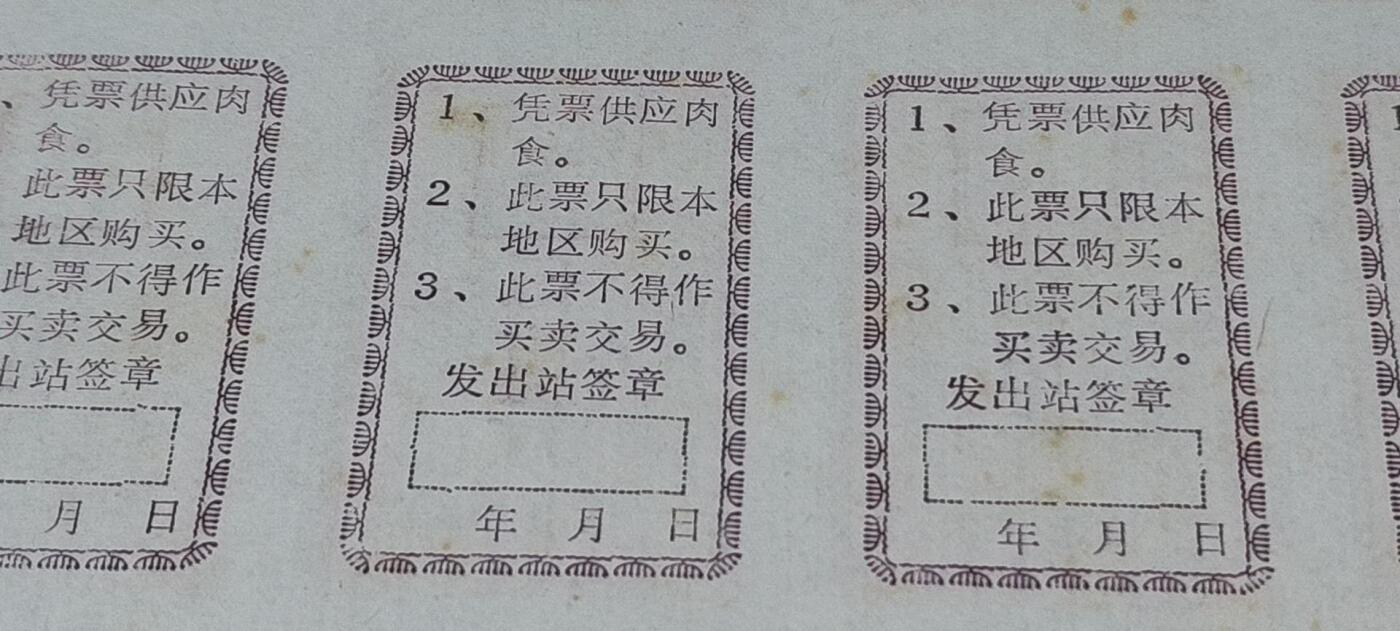 、凭票供应肉
食。
此票只限本
地区购买。
此票不得作
买卖交易。
出站签章
月 日
1、凭票供应肉
食。
2、此票只限本
地区购买。
3、此票不得作
买卖交易。
发出站签章
年 月 日
1、凭票供应肉
食。
2、此票只限本
地区购买。
3、此票不得作
买卖交易。
发出站签章
年 月 日